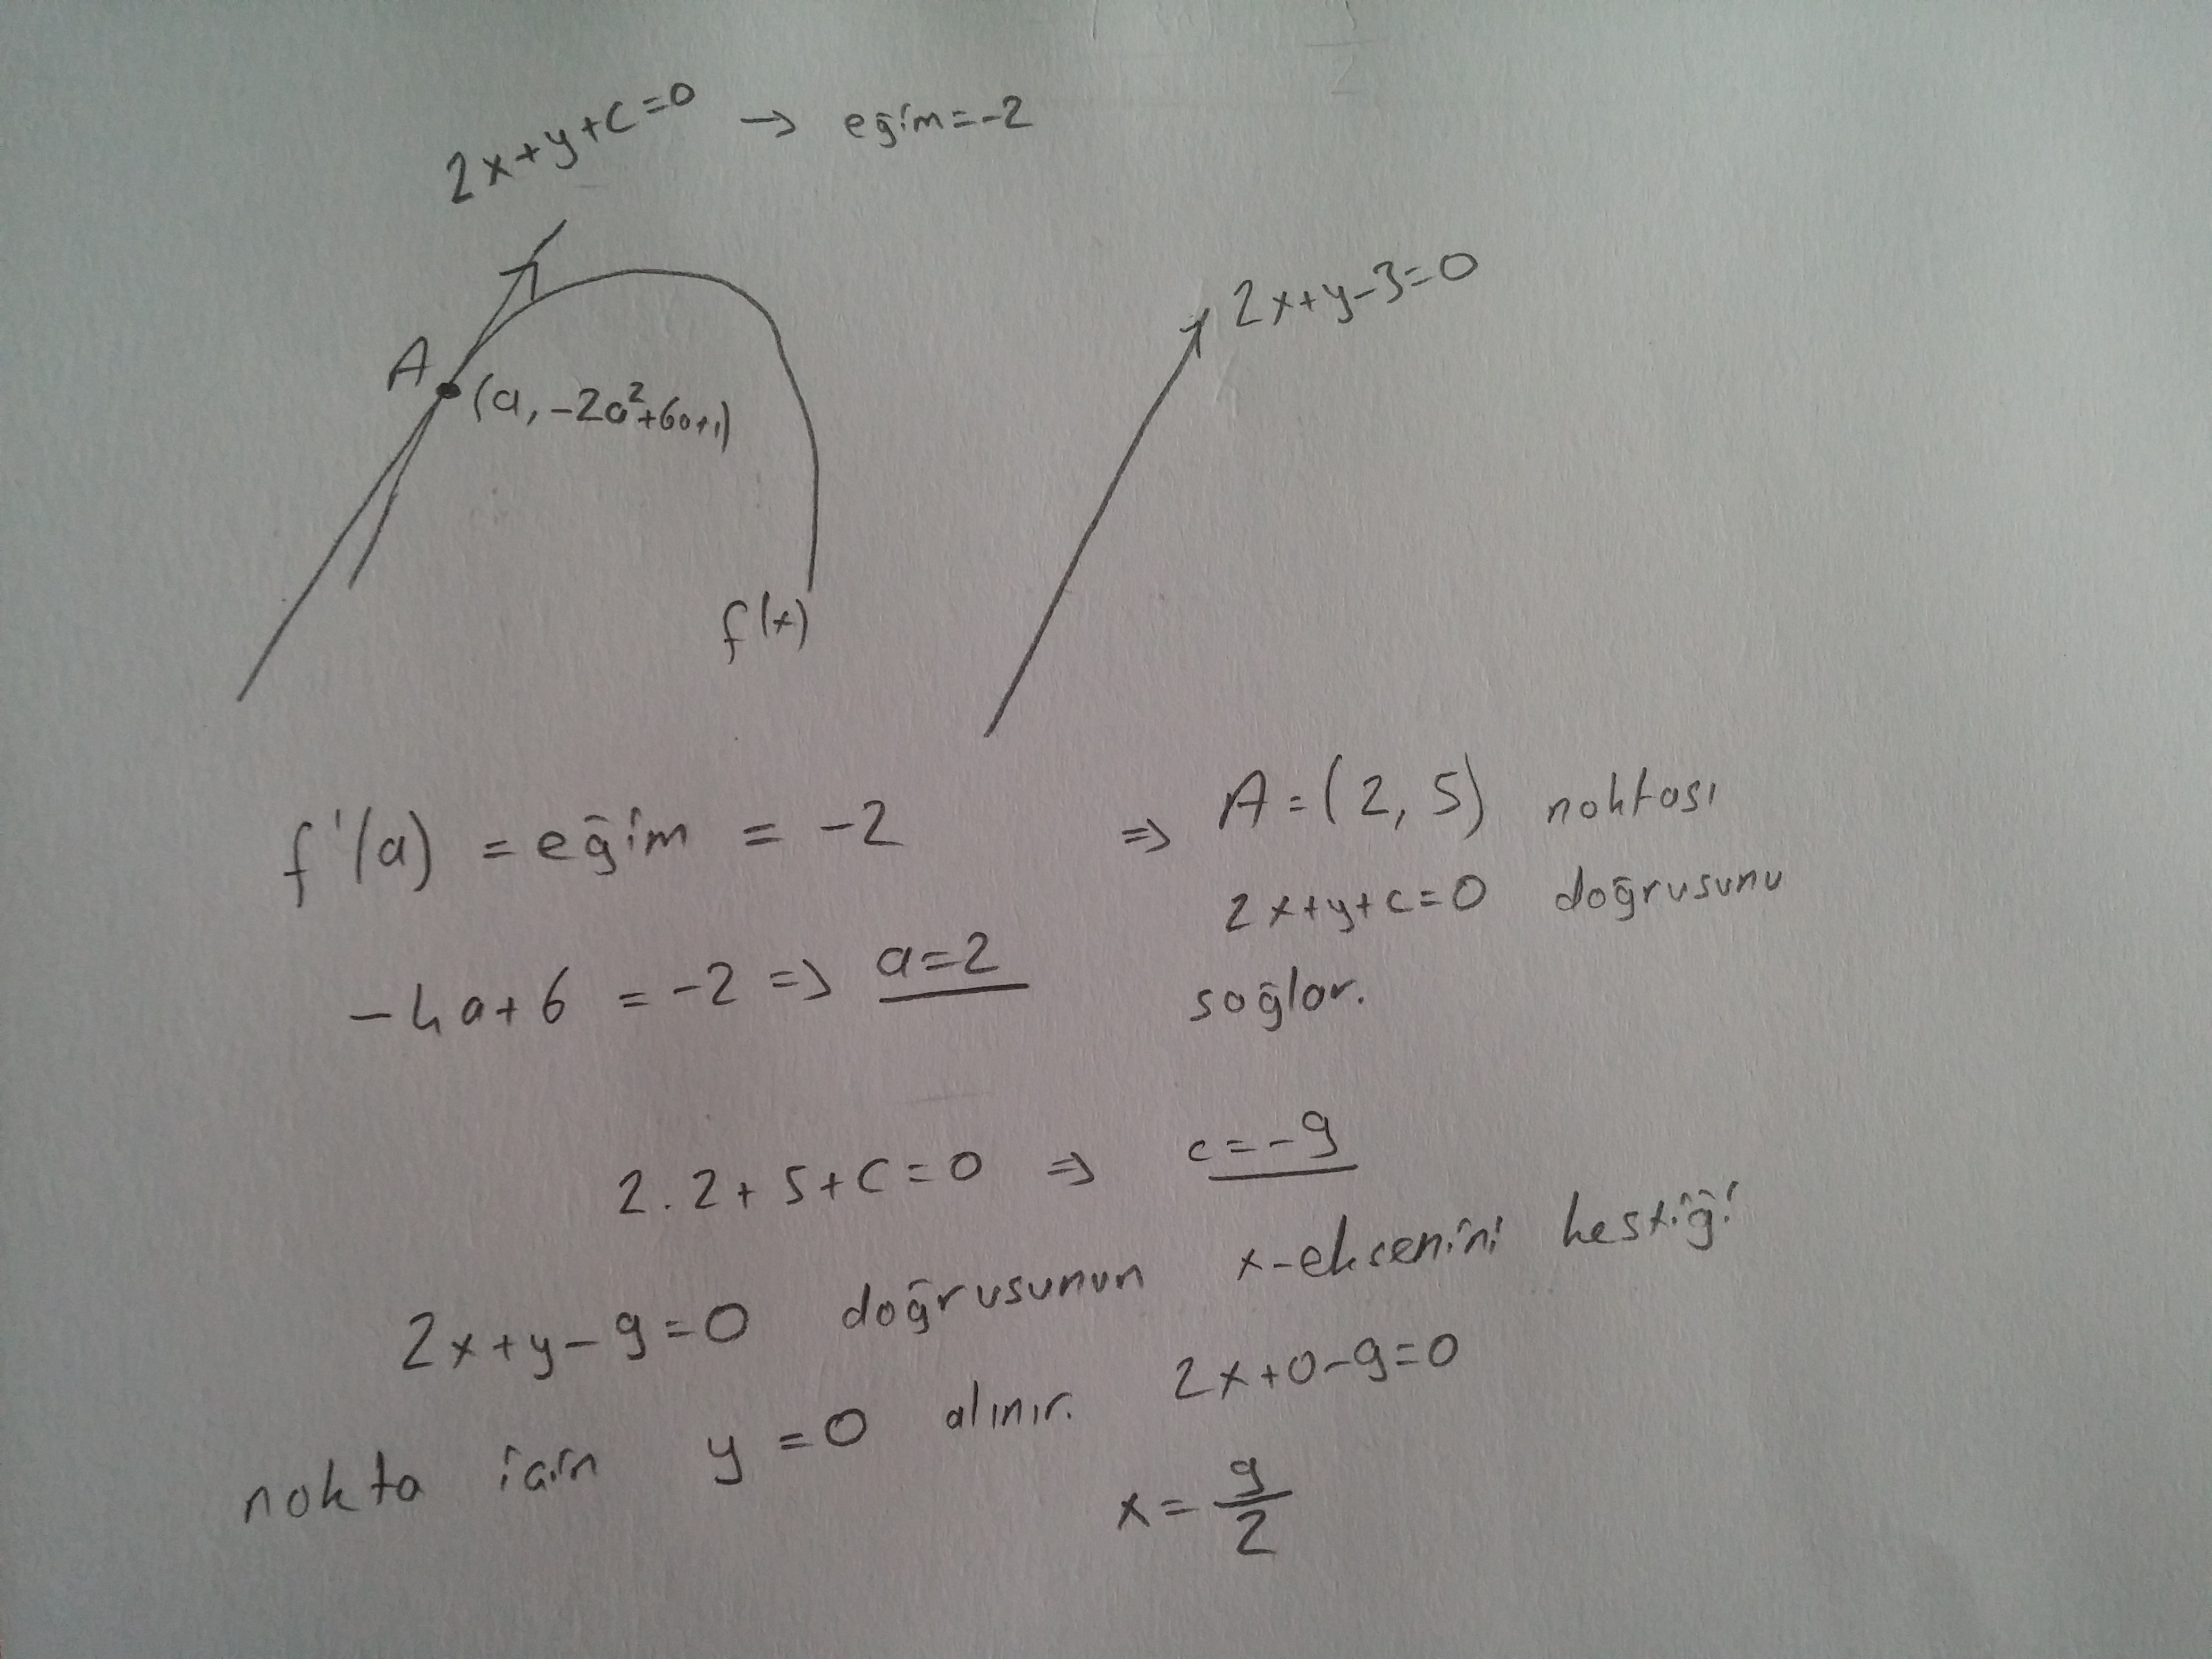 2x+y+c=0 → eğim=-2
2x+y-3=0
A
(a, -2a²+6a+1)
f(x)
f'(a) = eğim = -2
-4a+6 = -2 => a=2
=> A=(2,5) noktası
2x+y+c=0 doğrusunu
sağlar.
2.2+5+c=0 => c=-9
2x+y-9=0 doğrusunun x-eksenini kestiği
nokta için y=0 alınır. 2x+0-9=0
x=9/2